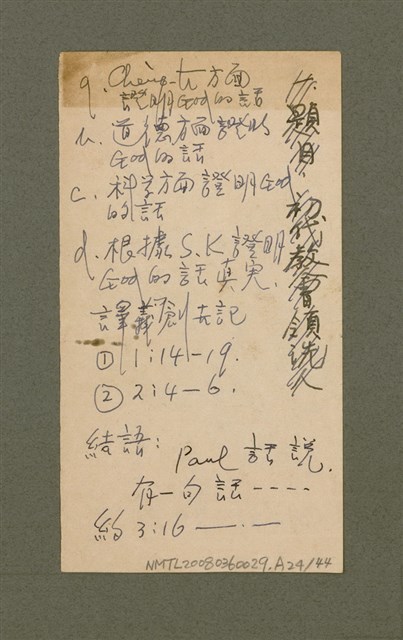 a. Chèng-tī方面
證明God的話
b. 道德方面證明
God的話
c. 科学方面證明God
的話
d. 根據S.K證明
God的話真実.
譯義創世記
① 1:14-19.
② 2:4-6.
結語:
Paul 話說.
有一句話----
約3:16 —.—
題目:初代教會領
NMTL20080360029.A24/44